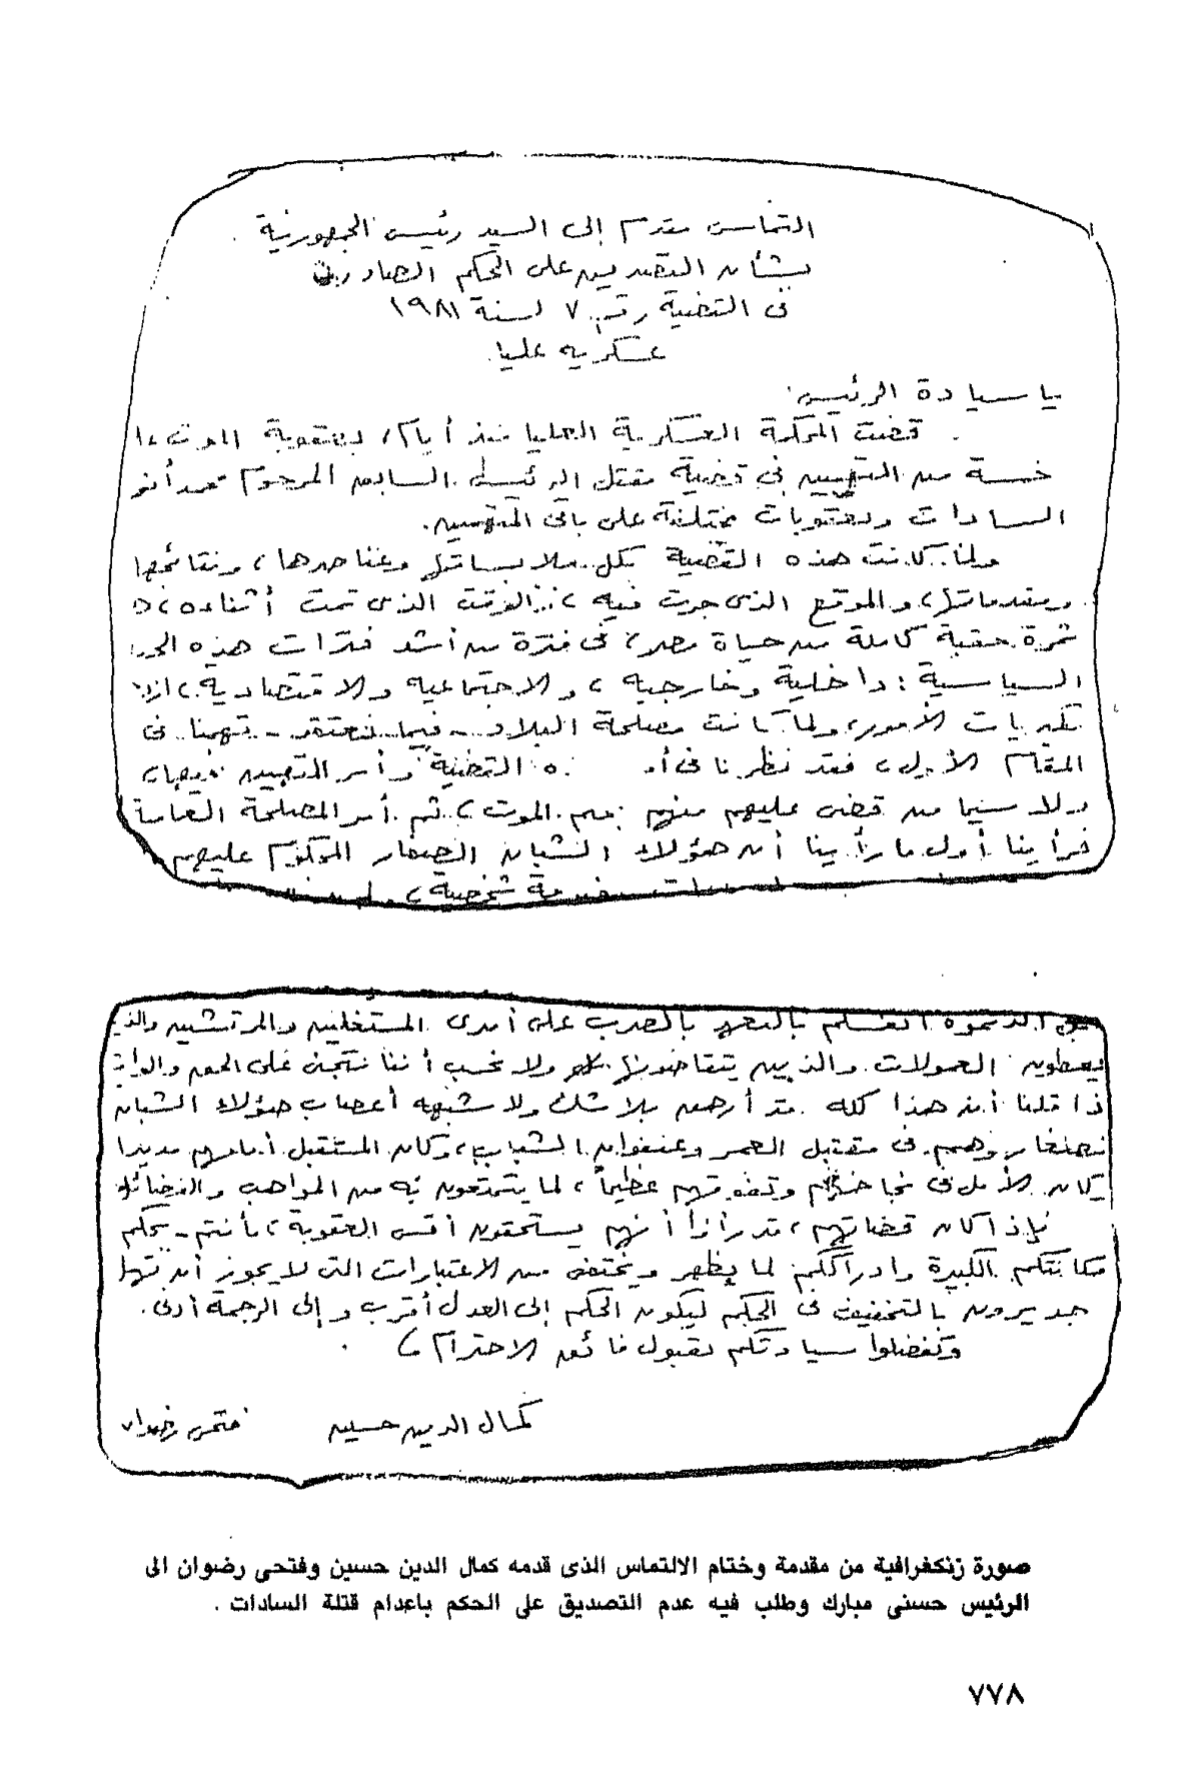 التماس مقدم إلى السيد رئيس الجمهورية
بشأن التصديق على الحكم الصادر
فى القضية رقم ٧ لسنة ١٩٨١
عسكرية عليا
يا سيادة الرئيس
قضت المحكمة العسكرية العليا منذ أيام، بعقوبة الموت
خمسة من المتهمين فى قضية مقتل الرئيس السابق المرحوم محمد أنور
السادات وبعقوبات مختلفة على باقى المتهمين.
ولما كانت هذه القضية بكل ملابساتها وعناصرها، ونتائجها
ومقدماتها، والموقع الذى جرت فيه، والوقت الذى تمت أثناءه،
ثمرة حقبة كاملة من حياة مصر، فى فترة من أشد فترات هذه
السياسية: داخلية وخارجية، والاجتماعية والاقتصادية،
كبريات الأمور، ولما كانت مصلحة البلاد - فيما نعتقد - تهمنا فى
المقام الأول، فقد نظرنا فى القضية وأمر المتهمين فيها،
ولا سيما من قضى عليهم منهم الموت، ثم أمر المصلحة العامة
فرأينا أول ما رأينا أن هؤلاء الشبان الصغار المحكوم عليهم
خدمة شخصية،
بالضرب على أيدى المستغلين والمرتشين والذين
يعطون العمولات والذين يتقاضونها ولا نحسب أننا نتجنى على الحق
ذا قلنا أن هذا كله قد أرهق بلا شك ولا شبهة أعصاب هؤلاء الشبان
الصغار وهم فى مقتبل العمر وعنفوان الشباب، وكان المستقبل أمامهم مديدا
وكان الأمل فى نجاحهم وتفوقهم عظيماً، لما يتمتعون به من المواهب والفضائل
فإذا كان قضاتهم، قد رأوا أنهم يستحقون أقسى العقوبة، فأنتم - بحكم
مكانتكم الكبيرة وادراككم لما يظهر ويختفى من الاعتبارات التى لا يجوز
جديرون بالتخفيف فى الحكم ليكون الحكم إلى العدل أقرب وإلى الرحمة أدنى.
وتفضلوا سيادتكم بقبول فائق الاحترام،
كمال الدين حسين فتحى رضوان
صورة زنكغرافية من مقدمة وختام الالتماس الذى قدمه كمال الدين حسين وفتحى رضوان الى
الرئيس حسنى مبارك وطلب فيه عدم التصديق على الحكم باعدام قتلة السادات .
٧٧٨